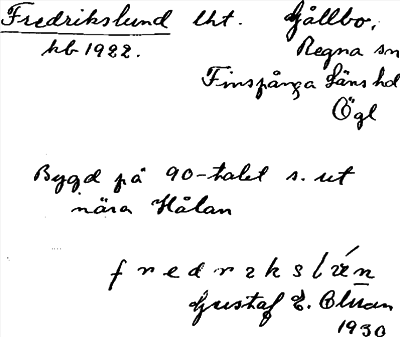 Fredrikslund lht. Gållbo,
kb 1922. Regna sn
Finspånga läns hd
Ögl
Bygd på 90-talet s. ut
nära Hålan
Gustaf E.
1930